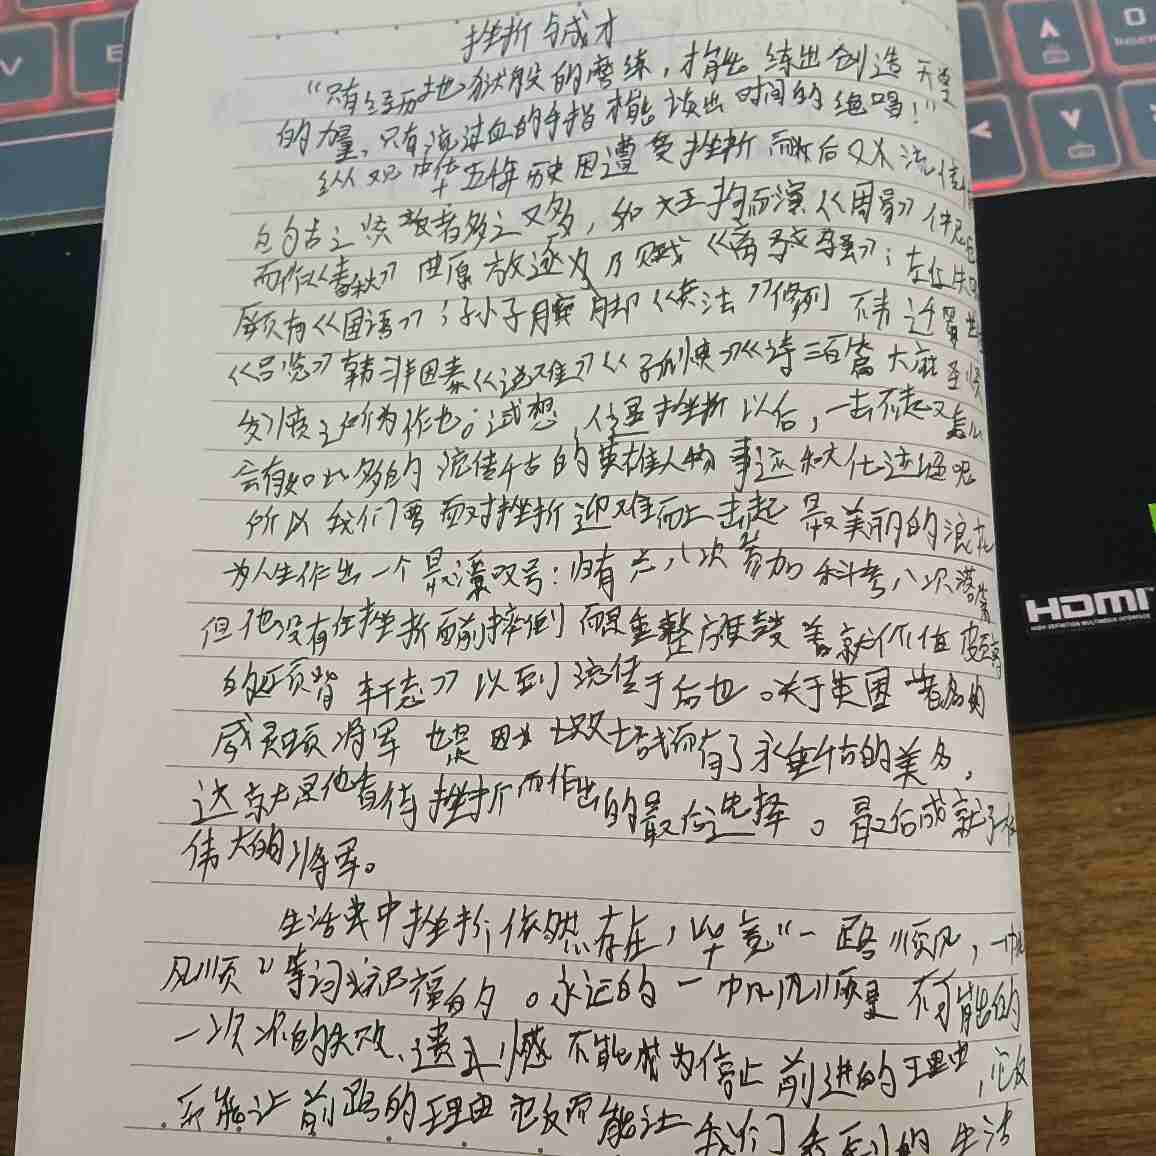 挫折与成才
“只有经历地狱般的磨练，才能练出创造天堂
的力量，只有流过血的手指才能谈出时间的绝唱！”
纵观中华五年历史因遭受挫折而后又不流传
自勾古之贤者多之又多，如文王拘而演《周易》仲尼
而作《春秋》屈原放逐为乃赋《离骚》；左丘失
厥有《国语》；孙子膑脚《兵法》修列 不韦迁蜀世
《吕览》韩非因秦《说难》《孤愤》《诗三百篇大底圣贤
发愤之所为作也。试想，人遇挫折以后，一击不起又怎么
会有如此多的流传千古的英雄人物事迹和大作述语呢
所以我们要面对挫折迎难而上击起最美丽的浪花
为人生作出一个最满叹号：归有光八次参加科考八次落第
但他没有在挫折面前摔倒而是重整旗鼓 著就价值
的《项脊轩志》以至流传千古也。关于英国著名的
威灵顿将军也是因为七败七战而有了永垂千古的美名，
这就是他看待挫折而作出的最后选择。最后成就了
伟大的将军。
生活当中挫折依然存在，毕竟“一路顺风，一帆
风顺”等词祝福的。永远的一帆风顺是不可能的
一次次的失败、遗憾不能成为停止前进的理由，它反
不能让前路的理由它反而能让我们看到的生活
HDMI
HIGH-DEFINITION MULTIMEDIA INTERFACE